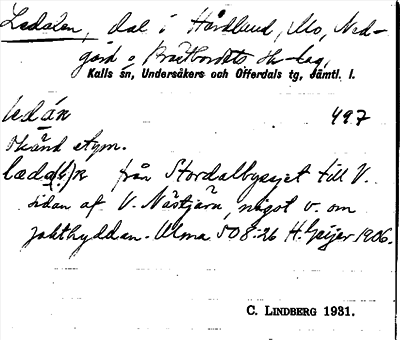 Ledalen, dal i Hårdlund, Mo, Ned-
gård o Prästbordets sk-lag,
Kalls sn, Undersåkers och Offerdals tg, Jämtl. l.
ledán 497
Okänd etym.
lædd(ł)n från Stordalbygget till V.
sidan af V. Nästjärn, något v. om
jakthyddan. Ulma 508:26 H. Geijer 1906.
C. LINDBERG 1931.